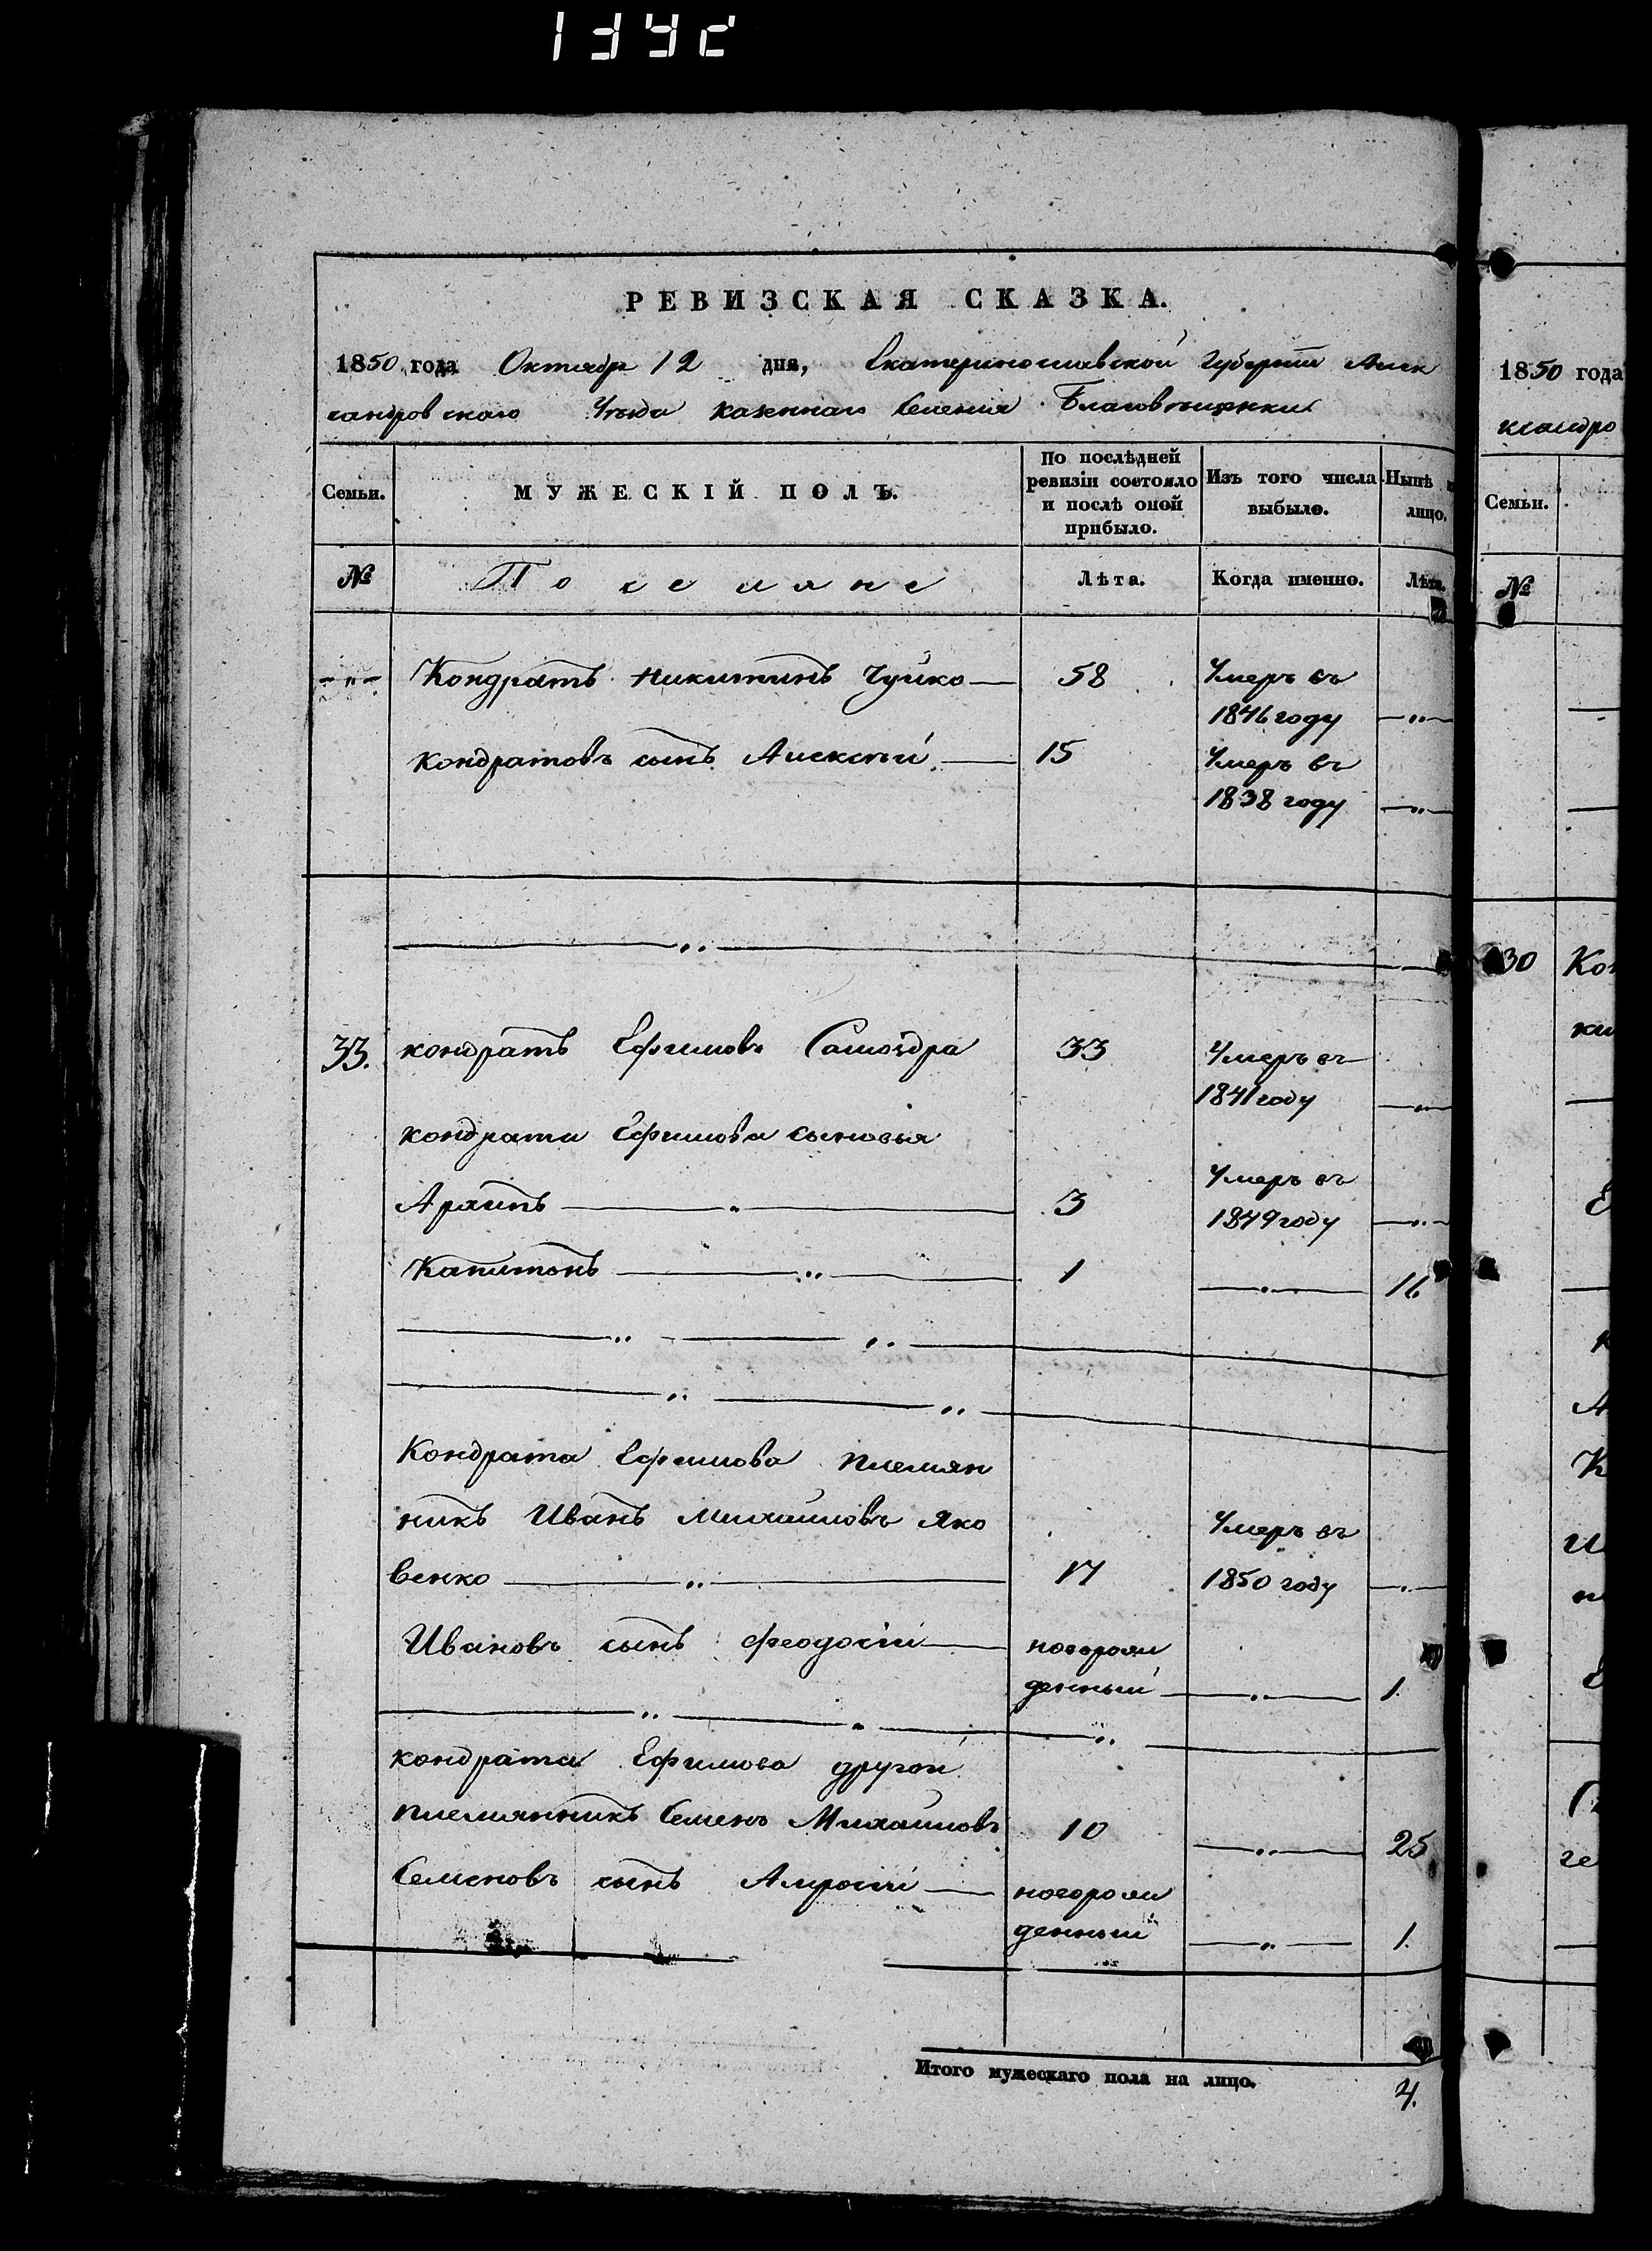 РЕВИЗСКАЯ СКАЗКА.
1850 года Октября 12 дня, Екатеринославской Губернии Алек
сандровскаго Уѣзда казеннаго Селенія Благовѣщенки
Семьи.
МУЖЕСКІЙ ПОЛЪ.
По послѣдней ревизіи состояло и послѣ оной прибыло.
Изъ того числа выбыло.
Нынѣ
лицо.
№
Поселяне
Лѣта.
Когда именно.
Лѣта.
Кондратъ Никитинъ Чуйко 58 Умеръ въ
1846 году
Кондратовъ сынъ Алексѣй 15 Умеръ въ
1838 году
33. Кондратъ Ефимовъ 33 Умеръ въ
1841 году
Кондрата Ефимова сыновья
3 Умеръ въ
1849 году
Капитонъ 1 16
Кондрата Ефимова племян
никъ Иванъ Михайловъ Яко
венко 17 Умеръ въ
1850 году
Ивановъ сынъ Феодосій новорож
денный 1.
Кондрата Ефимова другой
племянникъ Семенъ Михайловъ 10 25
Семеновъ сынъ новорож
денный 1.
Итого мужескаго пола на лицо. 4.
1850 года
ксандро
Семьи.
№
30